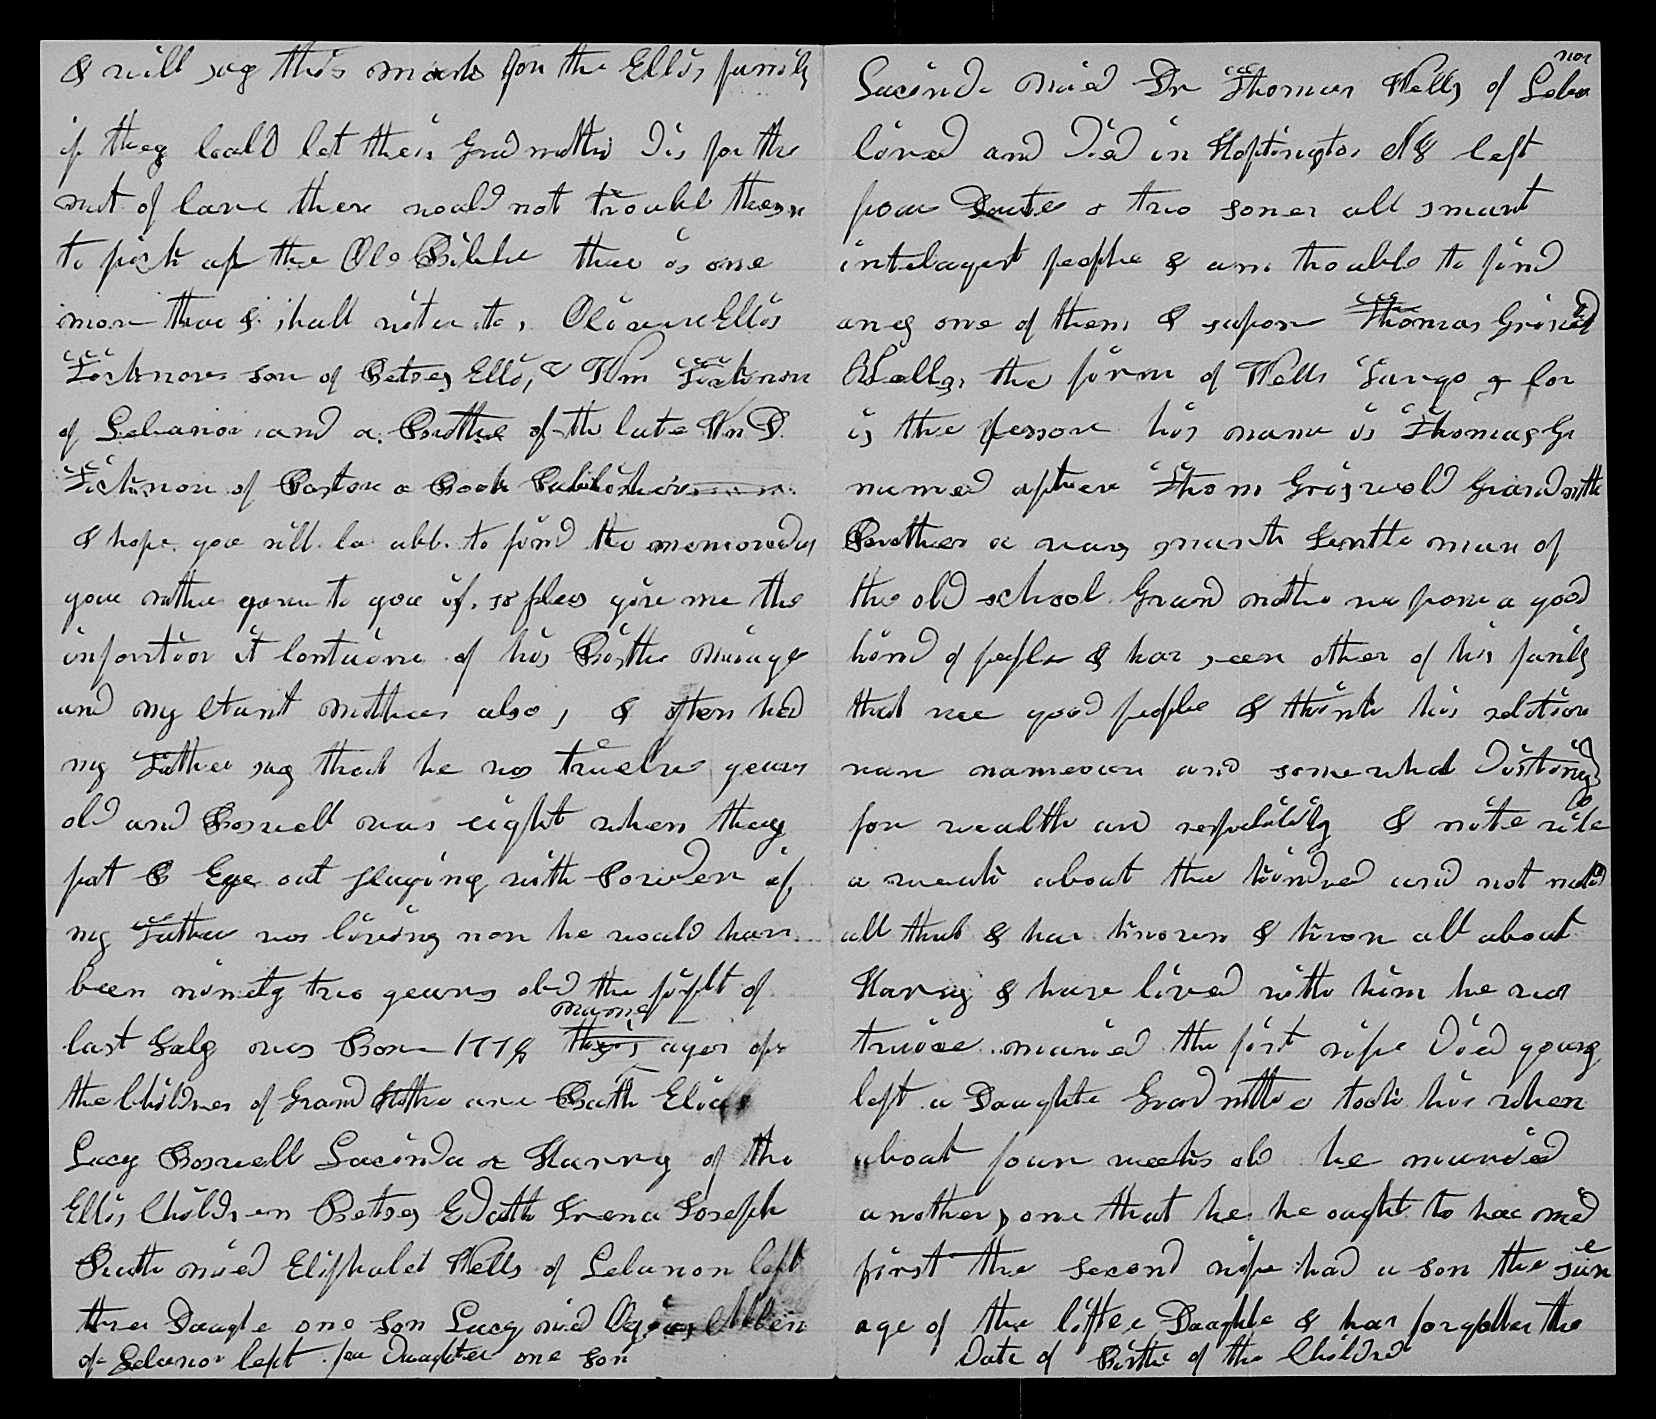 & will say this much for the Ellis family
if they could let their Grad mother Die for the
wut of care there would not trouble them
to pick up the Old Bibble thee is one
more thee & shall rite to, Oliver Ellis
Ticknor son of Betsey Ellis, & Wm Ticknor
of Lebanon and a Brother of the late Wm D
Ticknor of Boston a Book Publisher
& hope you will be abl to find the
you mother gave to you if so pleas give me the
it contains of his Births Mariage
and my Aunt mothers also, & often hed
my Father say that he was twelve years
old and Boswell was eight when they
put B Eye out playing with Powder if
my Father was living now he would have
been ninety two years old the fifth of
last July was Born 177 names
the Children of Grand are Ruth Elias
Lucy Boswell Lucinda & Harvey of the
Ellis Children Betsey Edath Irena Joseph
Ruth mied Eliphalet Wells of Lebanon left
three Daugte one Son Lucy mied
of Lebanon left for Daughter one Son
Lucinda Maied Dr Thomas Wells of Leba
non
lived and Died in Hopkington N left
four & two soner all smart
intelagent people & am trouble to find
any one of them & supose Thomas Griswold
Wells, the firm of Wells Fargo & for
is the person his name is Thomas Gr
named aftere Thom Griswold Grandmothe
Brother a vary smart Gentle man of
the old school Grand mothe wa from a good
kind of people & hav seen other of his family
that wee good people & think his relation
ware nameoun and somewhat
for wealth and respitibility & rite
a weak about the kindred and not
all that & hav known & know all about
Harvey & have lived with him he was
twice maried the first wife Died young
left a Daughte Grad mothe took his when
about four weeks old he maried
another, one that he he ought to hae mied
first the second wife had a son the sam
age of the little Daughte & hav forgotten the
Date of Births of the Children